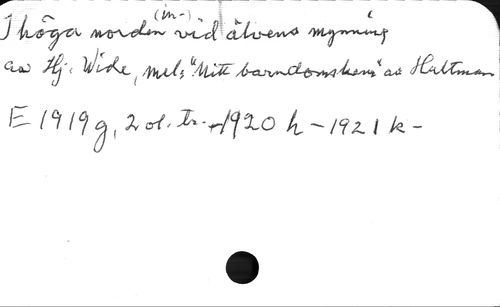 (in-)
I höga norden vid älvens mynning
av Hj. Wide, mel: "Mitt barndomshem" av Hultman
E 1919 g, 2 ol. tr. - 1920 h - 1921 k -